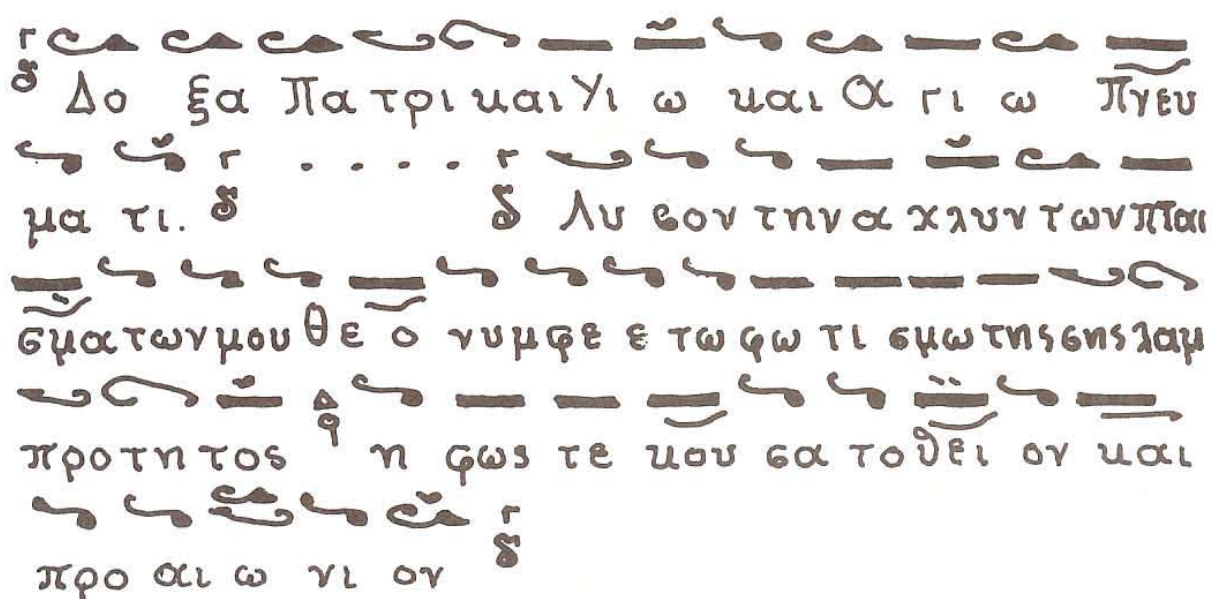 Δο ξα Πα τρι και Υι ω και Α γι ω Πνευ
μα τι. Λυ σον την α χλυν των πται
σμα των μου Θε ο νυμφε ε τω φω τι σμω της σης λαμ
προ τη τος η φως τε κου σα το θει ον και
προ αι ω νι ον